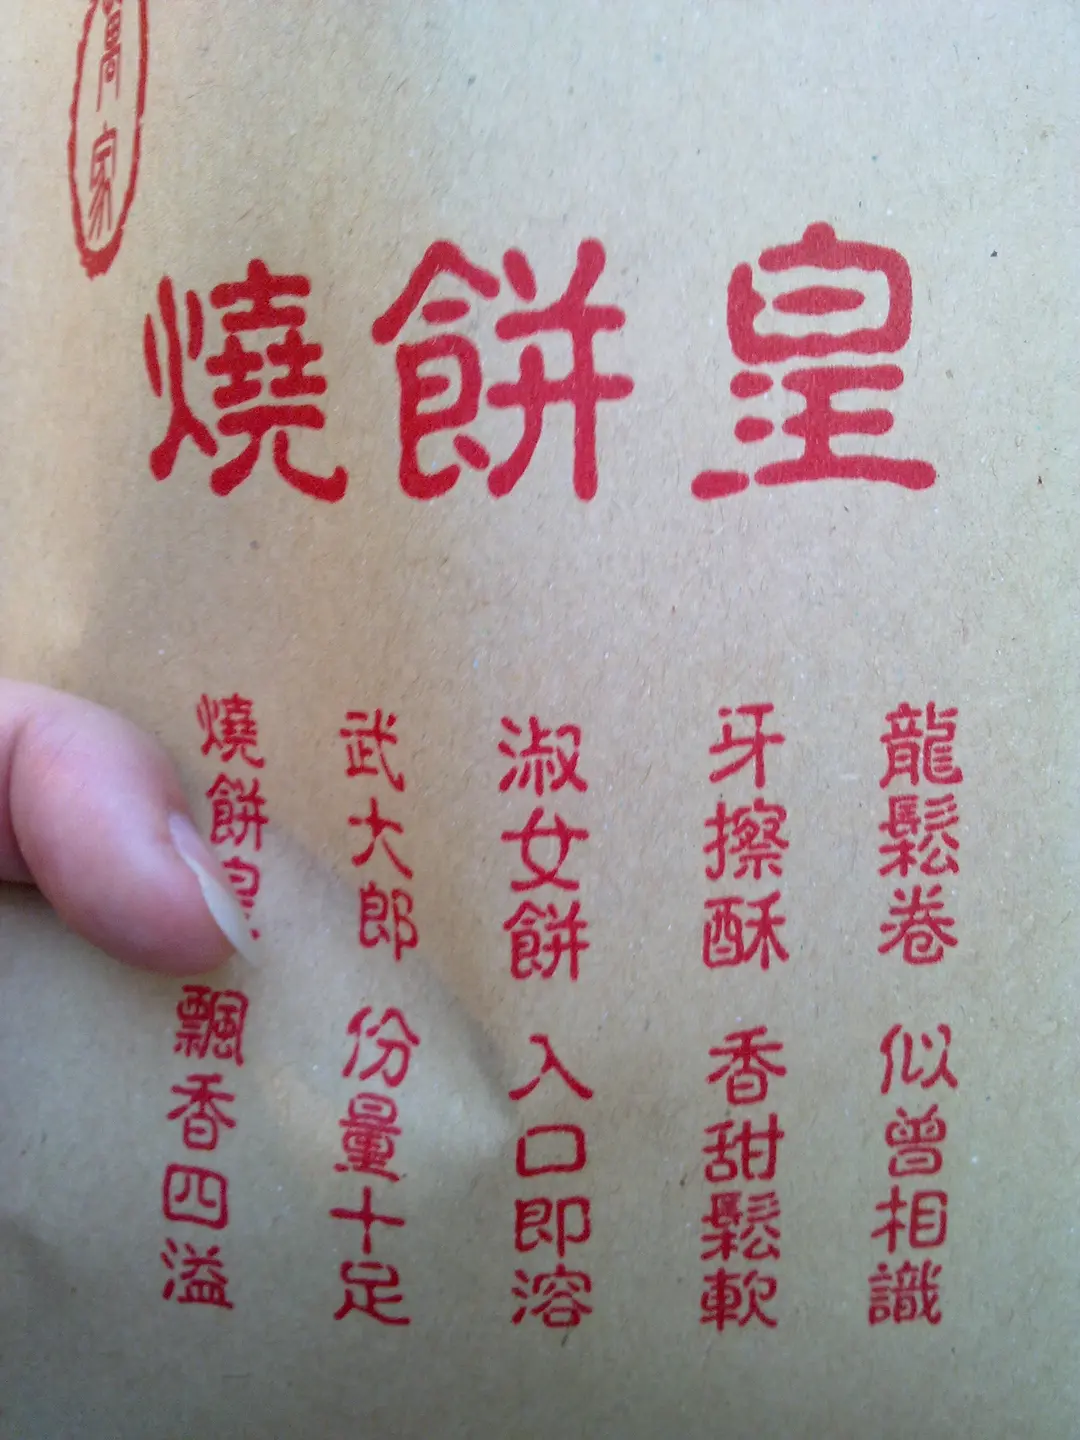 燒餅皇
龍鬆卷 似曾相識
牙擦酥 香甜鬆軟
淑女餅 入口即溶
武大郎 份量十足
燒餅皇 飄香四溢
家